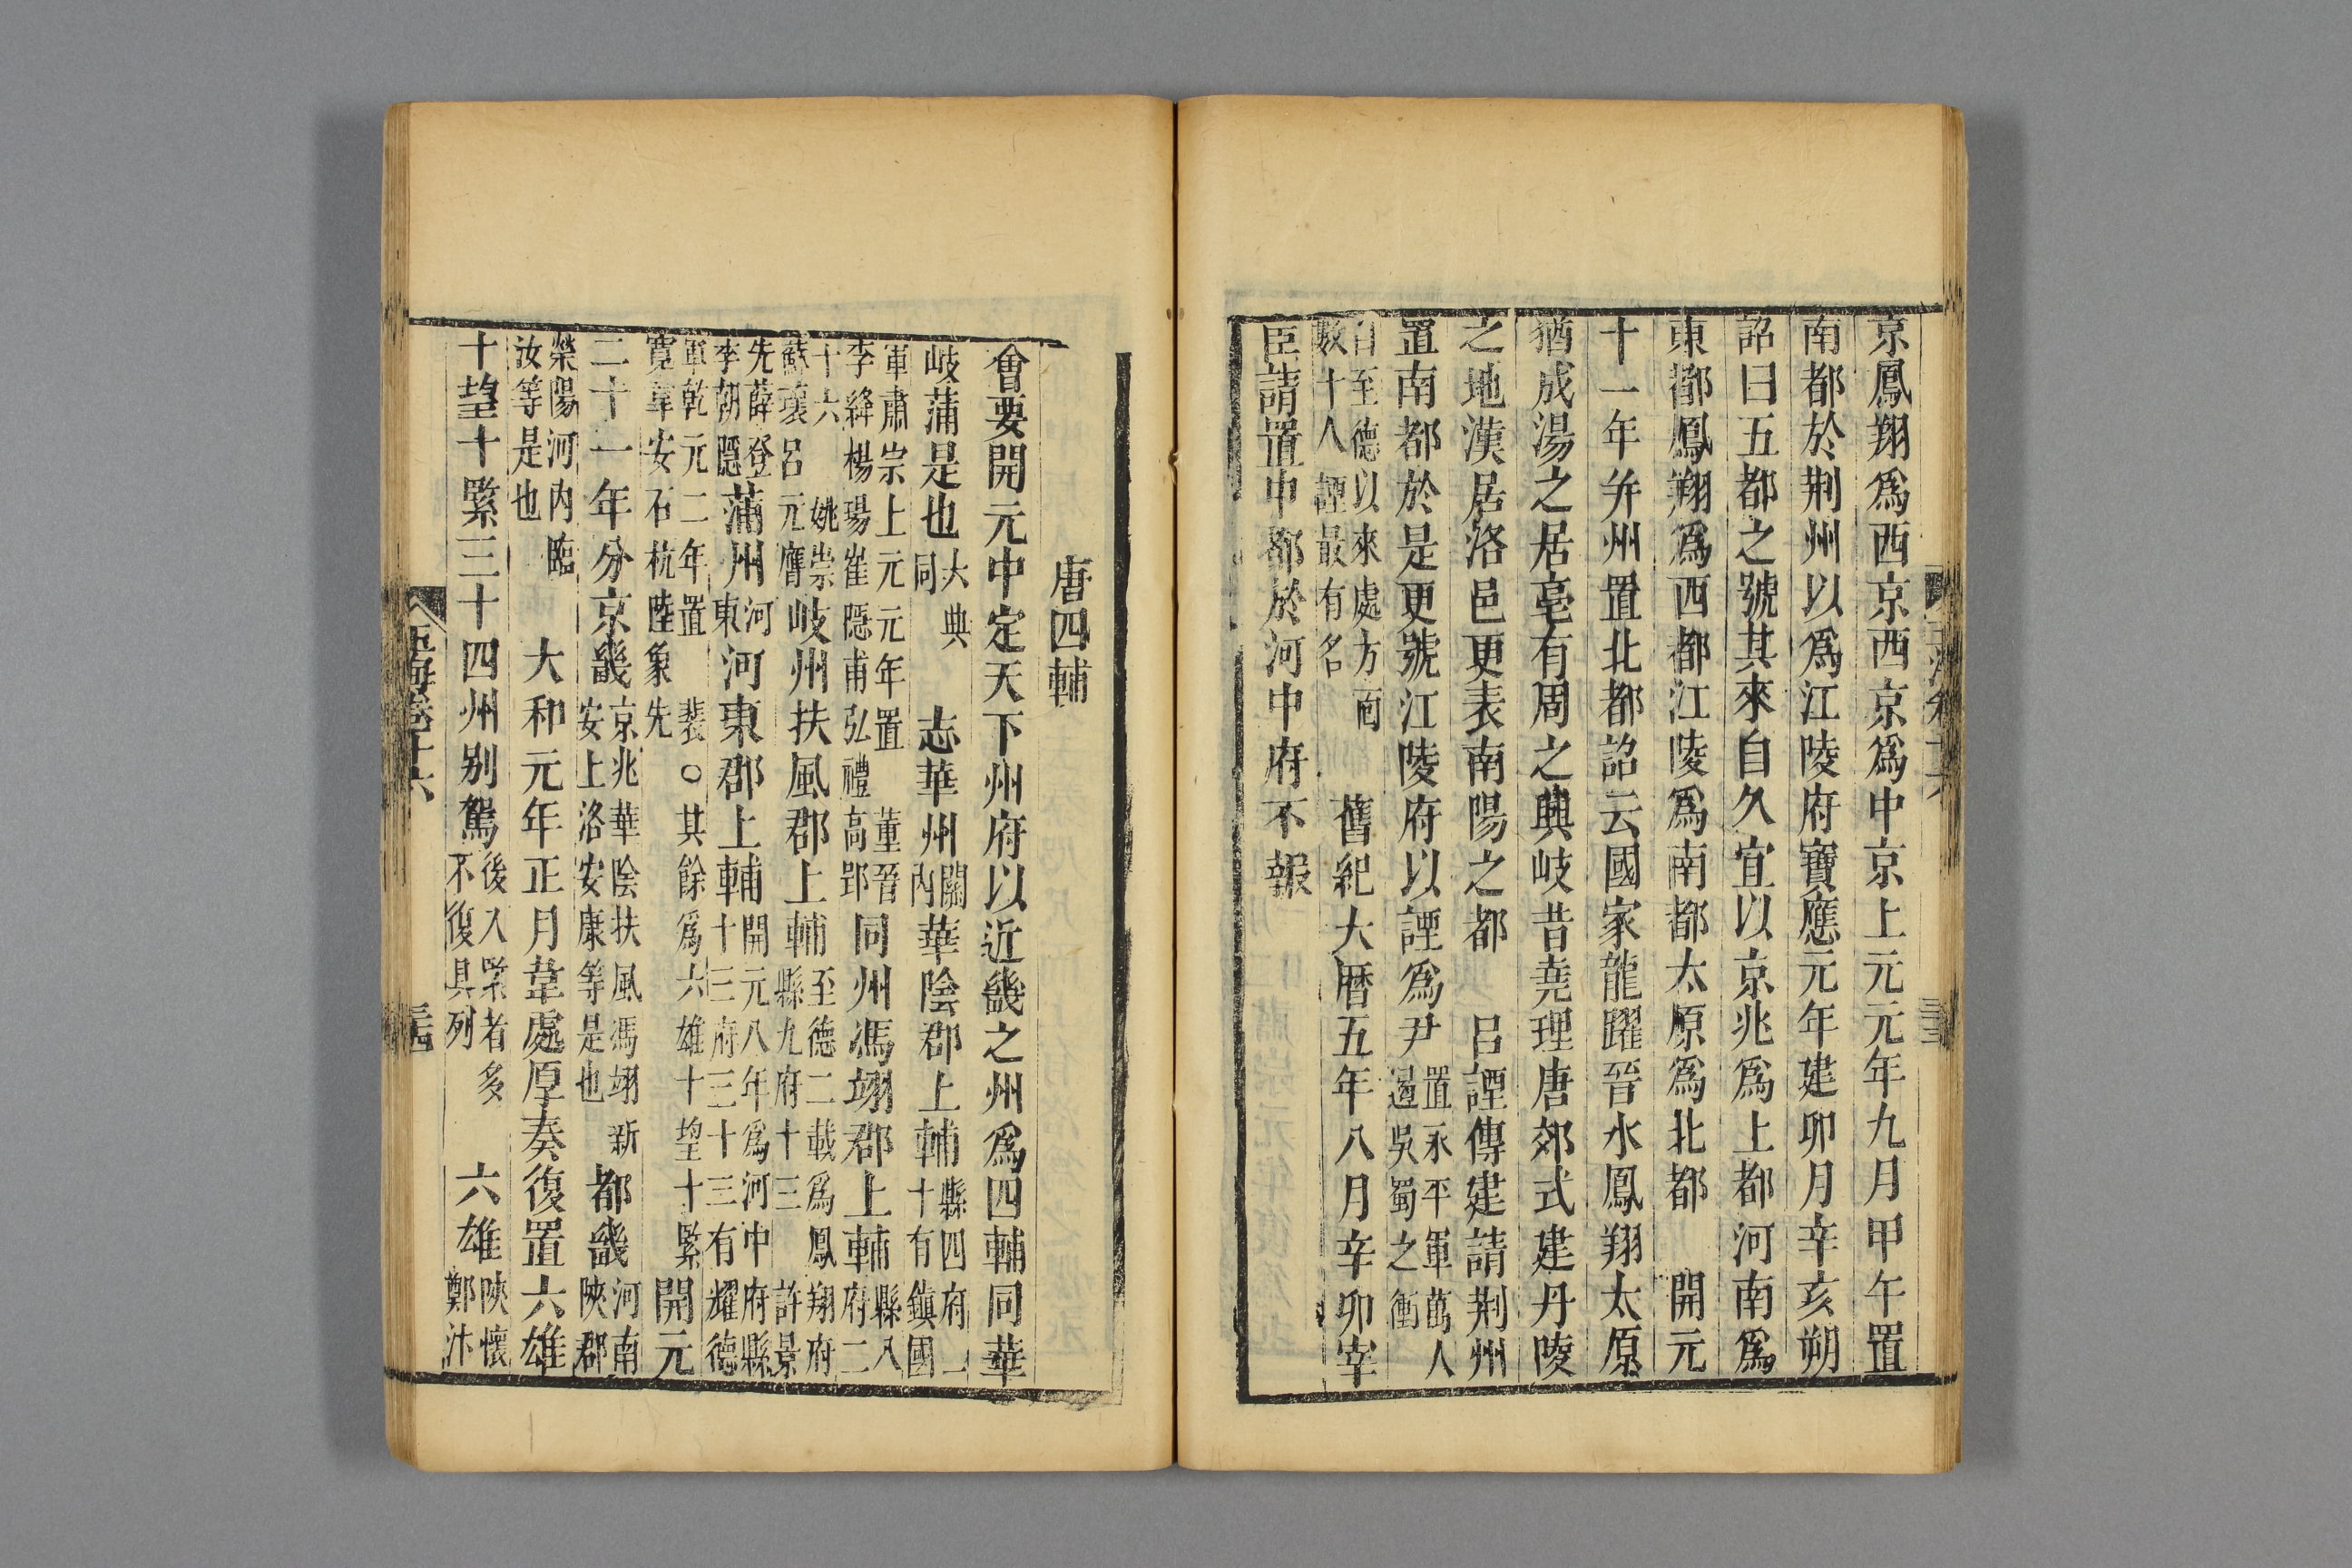 京鳳翔爲西京西京爲中京上元元年九月甲午置
南都於荆州以爲江陵府寶應元年建卯月辛亥朔
詔曰五都之號其來自久宜以京兆爲上都河南爲
東都鳳翔爲西都江陵爲南都太原爲北都 開元
十一年并州置北都詔云國家龍躍晉水鳳翔太原
猶成湯之居亳有周之興岐昔堯理唐郊式建丹陵
之地漢居洛邑更表南陽之都 吕諲傳建請荆州
置南都於是更號江陵府以諲爲尹置永平軍萬人遏吳蜀之衝
自至德以來處方面數十人諲最有名 舊紀大曆五年八月辛卯宰
臣請置中都於河中府不報
唐四輔
會要開元中定天下州府以近畿之州爲四輔同華
岐蒲是也大典同 志華州關内華陰郡上輔縣四府一十有鎮國
軍肅宗上元元年置李絳楊瑒崔隱甫弘禮董晉高郢同州馮翊郡上輔縣八府二
十六 姚崇蘇瓌吕元膺岐州扶風郡上輔至德二載爲鳳翔府縣九府十三 許景
先薛登李朝隱蒲州河東河東郡上輔開元八年爲河中府縣十三府三十三有耀德
軍乾元二年置裴寛韋安石杭陸象先○其餘爲六雄十望十緊 開元
二十一年分京畿京兆華陰扶風馮翊新安上洛安康等是也都畿河南陝郡
滎陽河内臨汝等是也 大和元年正月韋處厚奏復置六雄
十望十緊三十四州别駕後入緊者多不復具列 六雄陝懷鄭汴
玉海卷十六
三十四